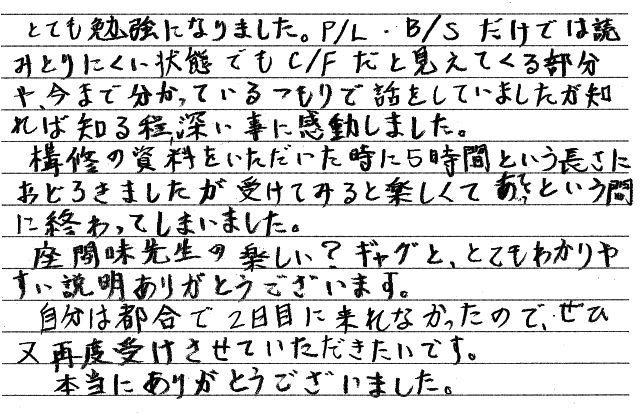 とても勉強になりました。P/L・B/Sだけでは読
みとりにくい状態でもC/Fだと見えてくる部分
や、今まで分かっているつもりで話をしていましたが知
れば知る程、深い事に感動しました。
構修の資料をいただいた時に5時間という長さに
おどろきましたが受けてみると楽しくてあっという間
に終わってしまいました。
座間味先生の楽しい?ギャグと、とてもわかりや
すい説明ありがとうございます。
自分は都合で2日目に来れなかったので、ぜひ
又再度受けさせていただきたいです。
本当にありがとうございました。